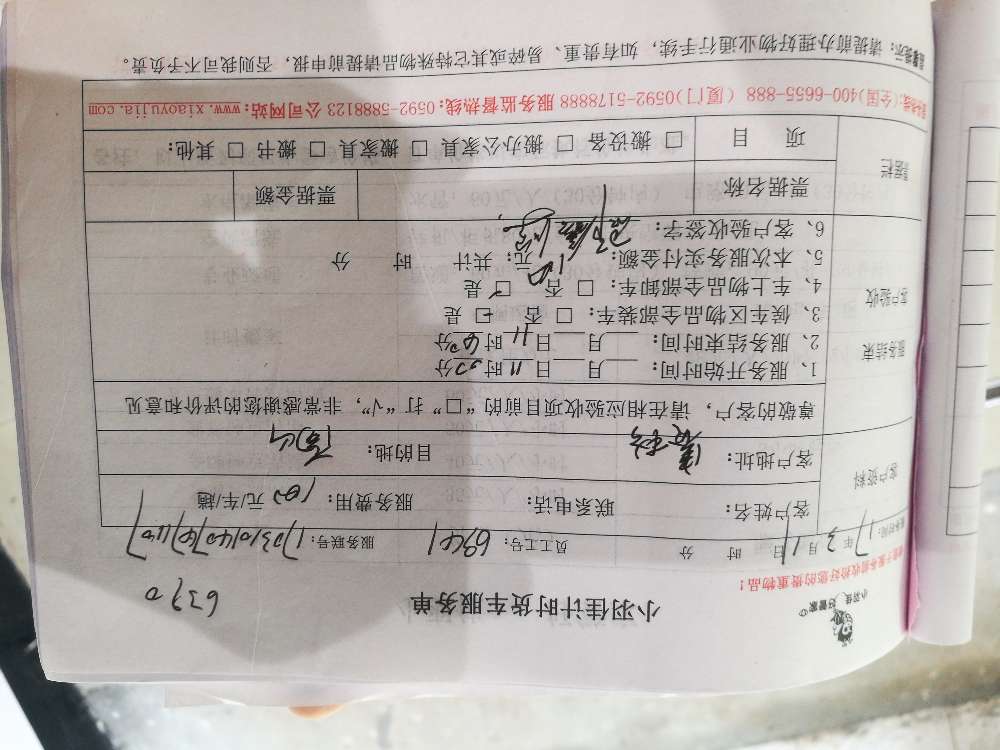 小羽佳计时货车服务单
6390
请于服务前收拾好您的贵重物品！
服务时间：17年3月1日 时 分 员工工号：6961 服务联号：
客户资料
客户姓名： 联系电话： 服务费用：元/车/趟
客户地址： 目的地：
尊敬的客户，请在相应验收项目前的“□”打“√”，非常感谢您的评价和意见
服务结束
客户验收
1、服务开始时间：___月___日11时20分
2、服务结束时间：___月___日11时40分
3、候车区物品全部装车：□ 否 □ 是
4、车上物品全部卸车：□ 否 □ 是
5、本次服务实付金额： 元；共计 时 分
6、客户验收签字：
票据栏
票据名称 票据金额
项 目 □ 搬设备 □ 搬办公家具 □ 搬家具 □ 搬书 □ 其他：
服务热线：(全国)400-6655-888 (厦门)0592-5178888 服务监督热线：0592-5888123 公司网站：www.xiaoyujia.com
温馨提示：请提前办理好物业通行手续，如有贵重、易碎或其它特殊物品请提前申报，否则我司不予负责。